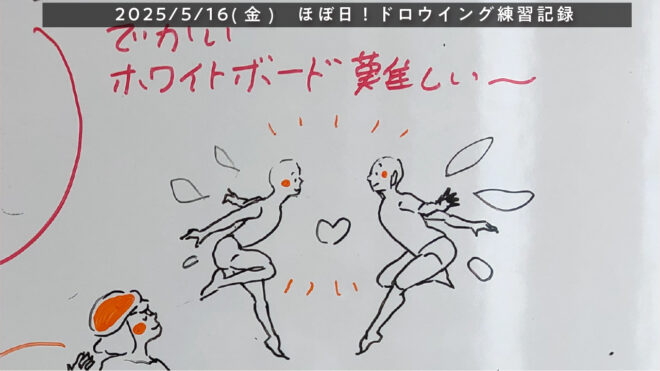 2025/5/16(金) ほぼ日！ドロウイング練習記録
でかい
ホワイトボード難しい〜